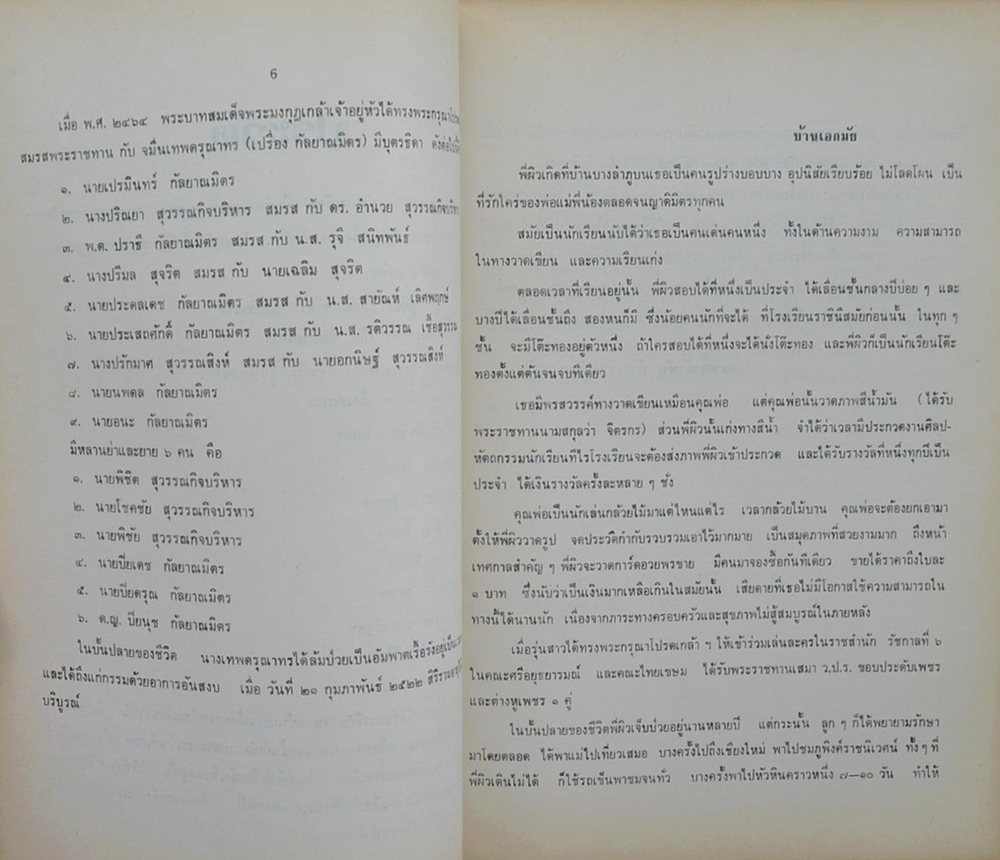 6
เมื่อ พ.ศ. ๒๔๖๔ พระบาทสมเด็จพระมงกุฎเกล้าเจ้าอยู่หัวได้ทรงพระกรุณา
สมรสพระราชทาน กับ จมื่นเทพดรุณาทร (เปรื่อง กัลยาณมิตร) มีบุตรธิดา
๑. นายเปรมินทร์ กัลยาณมิตร
๒. นางปริณยา สุวรรณกิจบริหาร สมรส กับ ดร. อำนวย สุวรรณกิจบริหาร
๓. พ.ต. ปราธี กัลยาณมิตร สมรส กับ น.ส. รุจี สนิทพันธ์
๔. นางปริมล สุจริต สมรส กับ นายเฉลิม สุจริต
๕. นายประดลเดช กัลยาณมิตร สมรส กับ น.ส. สายัณห์ เลิศพฤกษ์
๖. นายประเสกศักดิ์ กัลยาณมิตร สมรส กับ น.ส. รติวรรณ
๗. นางปรักมาศ สุวรรณสิงห์ สมรส กับ นายอกนิษฐ์ สุวรรณสิงห์
๘. นายนพดล กัลยาณมิตร
๙. นายอนะ กัลยาณมิตร
มีหลานย่าและยาย ๖ คน คือ
๑. นายพิชิต สุวรรณกิจบริหาร
๒. นายโชคชัย สุวรรณกิจบริหาร
๓. นายพิชัย สุวรรณกิจบริหาร
๔. นายปิยเดช กัลยาณมิตร
๕. นายปิยดรุณ กัลยาณมิตร
๖. ด.ญ. ปิยนุช กัลยาณมิตร
ในบั้นปลายของชีวิต นางเทพดรุณาทรได้ล้มป่วยเป็นอัมพาตเรื้อรังอยู่เป็น
และได้ถึงแก่กรรมด้วยอาการอันสงบ เมื่อ วันที่ ๒๑ กุมภาพันธ์ ๒๕๒๒ สิริรวม
บริบูรณ์
บ้านเอกมัย
พี่ผิวเกิดที่บ้านบางลำภูบนเธอเป็นคนรูปร่างบอบบาง อุปนิสัยเรียบร้อย ไม่โลดโผน เป็น
ที่รักใคร่ของพ่อแม่พี่น้องตลอดจนญาติมิตรทุกคน
สมัยเป็นนักเรียนนับได้ว่าเธอเป็นคนเด่นคนหนึ่ง ทั้งในด้านความงาม ความสามารถ
ในทางวาดเขียน และความเรียนเก่ง
ตลอดเวลาที่เรียนอยู่นั้น พี่ผิวสอบได้ที่หนึ่งเป็นประจำ ได้เลื่อนชั้นกลางปีบ่อย ๆ และ
บางปีได้เลื่อนชั้นถึง สองหนก็มี ซึ่งน้อยคนนักที่จะได้ ที่โรงเรียนราชินีสมัยก่อนนั้น ในทุก ๆ
ชั้น จะมีโต๊ะทองอยู่ตัวหนึ่ง ถ้าใครสอบได้ที่หนึ่งจะได้นั่งโต๊ะทอง และพี่ผิวก็เป็นนักเรียนโต๊ะ
ทองตั้งแต่ต้นจนจบทีเดียว
เธอมีพรสวรรค์ทางวาดเขียนเหมือนคุณพ่อ แต่คุณพ่อนั้นวาดภาพสีน้ำมัน (ได้รับ
พระราชทานนามสกุลว่า จิตรกร) ส่วนพี่ผิวนั้นเก่งทางสีน้ำ จำได้ว่าเวลามีประกวดงานศิลป-
หัตถกรรมนักเรียนทีไรโรงเรียนจะต้องส่งภาพพี่ผิวเข้าประกวด และได้รับรางวัลที่หนึ่งทุกปีเป็น
ประจำ ได้เงินรางวัลครั้งละหลาย ๆ ชั่ง
คุณพ่อเป็นนักเล่นกล้วยไม้มาแต่ไหนแต่ไร เวลากล้วยไม้บาน คุณพ่อจะต้องยกเอามา
ตั้งให้พี่ผิววาดรูป จดประวัติกำกับรวบรวมเอาไว้มากมาย เป็นสมุดภาพที่สวยงามมาก ถึงหน้า
เทศกาลสำคัญ ๆ พี่ผิวจะวาดการ์ดอวยพรขาย มีคนมาจองซื้อกันทีเดียว ขายได้ราคาถึงใบละ
๑ บาท ซึ่งนับว่าเป็นเงินมากเหลือเกินในสมัยนั้น เสียดายที่เธอไม่มีโอกาสใช้ความสามารถใน
ทางนี้ได้นานนัก เนื่องจากภาระทางครอบครัวและสุขภาพไม่สู้สมบูรณ์ในภายหลัง
เมื่อรุ่นสาวได้ทรงพระกรุณาโปรดเกล้า ฯ ให้เข้าร่วมเล่นละครในราชสำนัก รัชกาลที่ ๖
ในคณะศรีอยุธยารมณ์ และคณะไทยเขษม ได้รับพระราชทานเสมา ว.ป.ร. ขอบประดับเพชร
และต่างหูเพชร ๑ คู่
ในบั้นปลายของชีวิตพี่ผิวเจ็บป่วยอยู่นานหลายปี แต่กระนั้น ลูก ๆ ก็ได้พยายามรักษา
มาโดยตลอด ได้พาแม่ไปเที่ยวเสมอ บางครั้งไปถึงเชียงใหม่ พาไปชมภูพิงค์ราชนิเวศน์ ทั้ง ๆ ที่
พี่ผิวเดินไม่ได้ ก็ใช้รถเข็นพาชมจนทั่ว บางครั้งพาไปหัวหินคราวหนึ่ง ๗—๑๐ วัน ทำให้